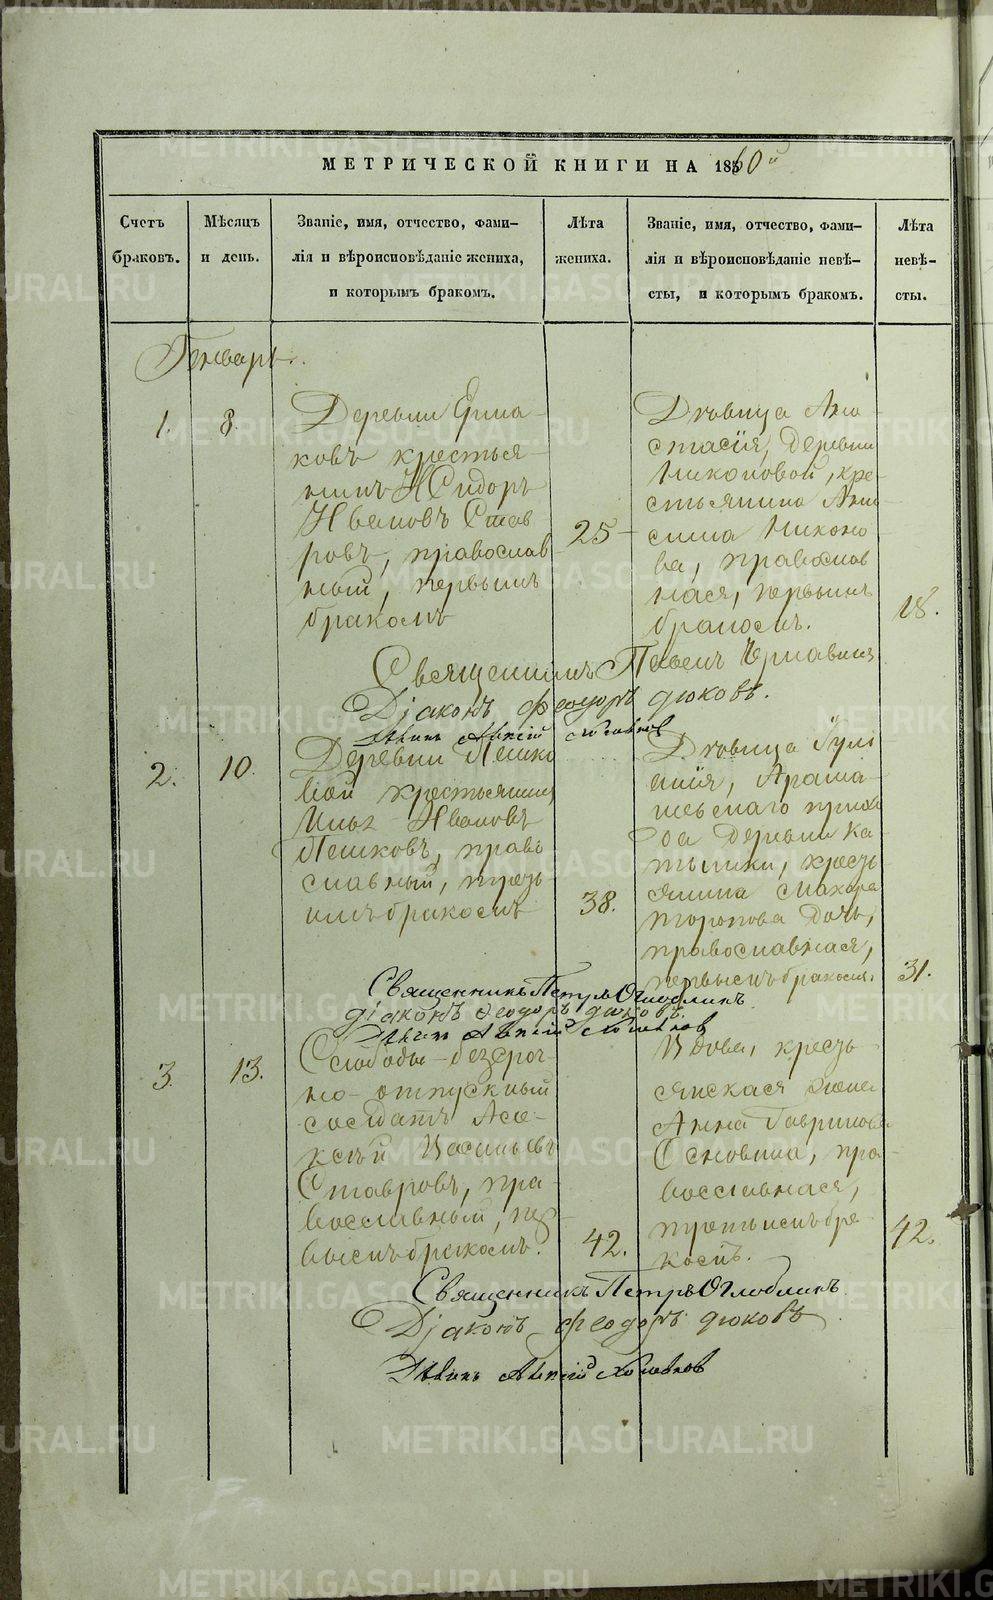 МЕТРИЧЕСКОЙ КНИГИ НА 1860й
Счетъ браковъ.
Мѣсяцъ и день.
Званіе, имя, отчество, фами-
лія и вѣроисповѣданіе жениха,
и которымъ бракомъ.
Лѣта жениха.
Званіе, имя, отчество, фами-
лія и вѣроисповѣданіе невѣ-
сты, и которымъ бракомъ.
Лѣта невѣ-
сты.
Генварь.
1.
8.
Деревни Ерма-
ковъ крестья-
нинъ Исидоръ
Ивановъ Став
ровъ, православ
ный, первымъ
бракомъ
25
Дѣвица Ана-
стасія, Деревни
Никоновой, кре-
стьянина Ани
сима Никоно
ва, православ
ная, первымъ
бракомъ.
18.
Священникъ Павелъ
Діаконъ Феодоръ Дюковъ.
2.
10.
Деревни Пешко
вой крестьянинъ
Илья Ивановъ
Пешковъ, право
славный, треть
имъ бракомъ
38.
Дѣвица Іулі
анія, Арама-
шевскаго прихо
да Деревни Ка-
тышки, кресть
янина Макара
Торопова Дочь,
православная,
первымъ бракомъ.
31.
Священникъ Петръ Оглоблинъ
Діаконъ Феодоръ Дюковъ.
3.
13.
Слободы безсроч-
но-отпускный
солдатъ Але-
ксѣй Васильевъ
Ставровъ, пра-
вославный, пер-
вымъ бракомъ.
42.
Вдова, кресть
янская жена
Анна Гаврилова
православная,
третьимъ бра-
комъ.
42.
Священникъ Петръ Оглоблинъ
Діаконъ Феодоръ Дюковъ
METRIKI.GASO-URAL.RU